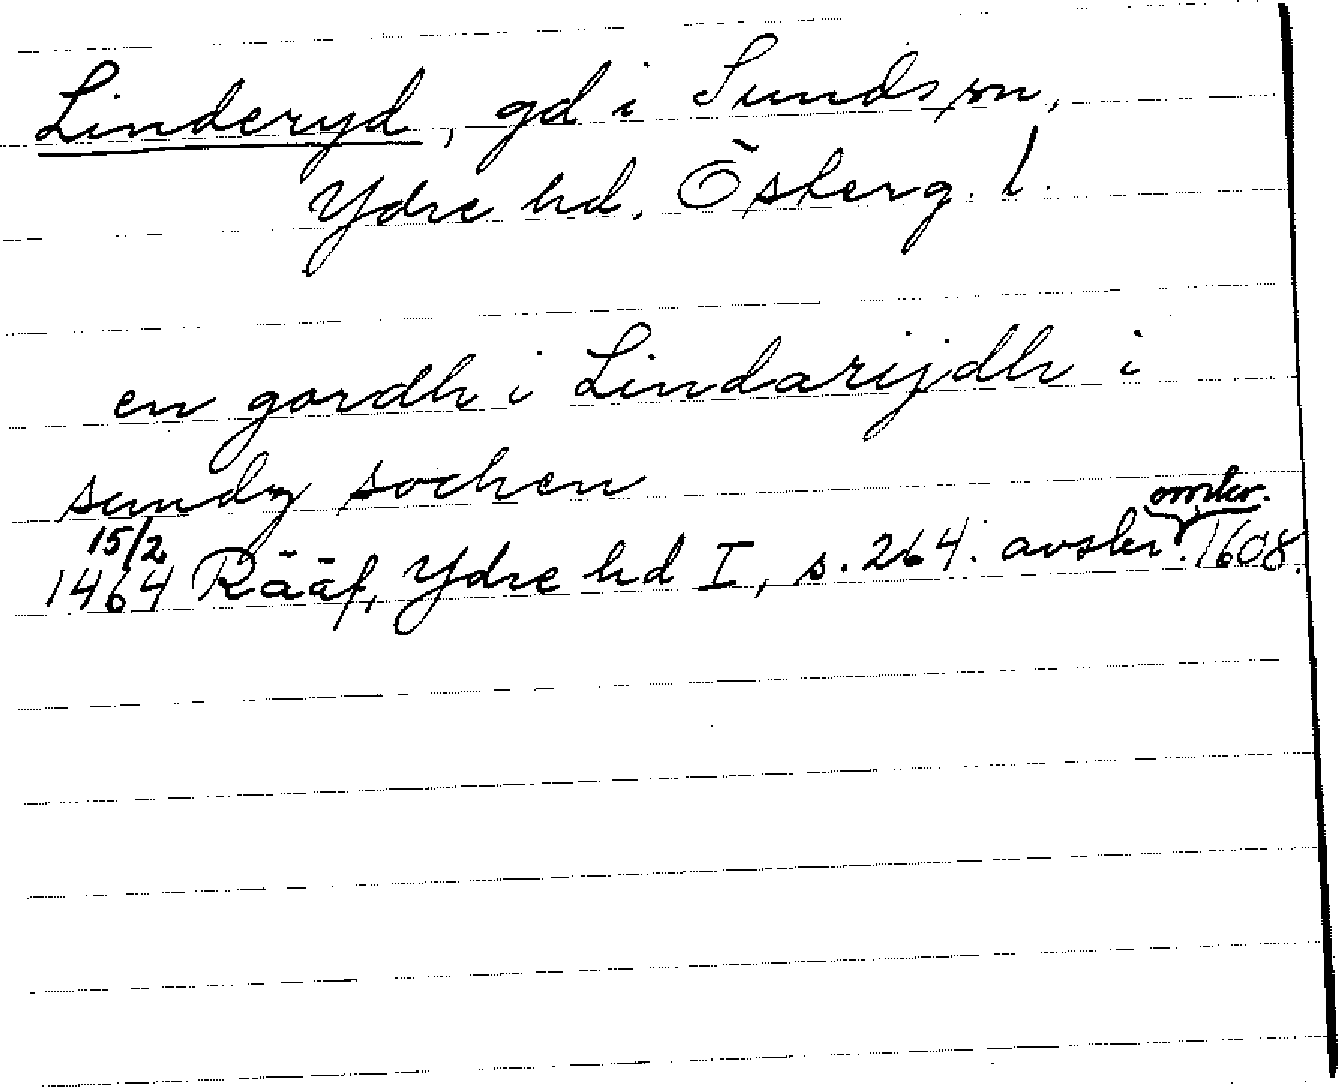 Linderyd, gd i Sunds sn,
Ydre hd. Österg. l.
en gordh i Lindarijdh i
sundz sochen
15/2 omkr.
1464 Rääf, Ydre hd I, s. 264. avskr. 1608.